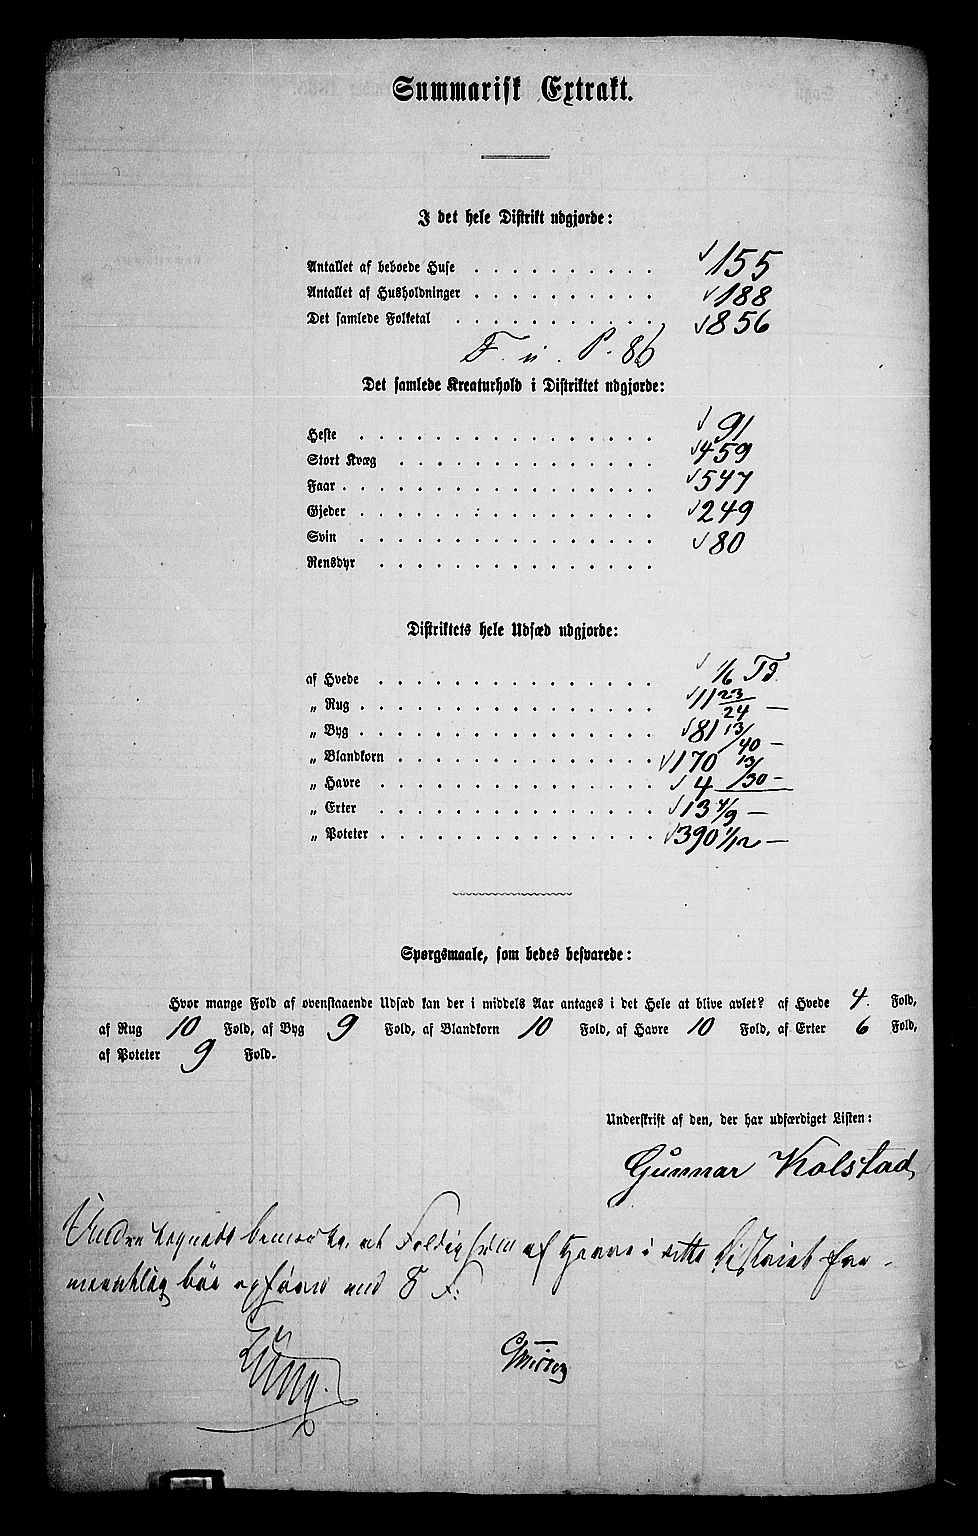 Summarisk Extrakt.
I det hele Distrikt udgjorde:
Antallet af beboede Huse . . . . . . . . . . 155
Antallet af Husholdninger . . . . . . . . . . 188
Det samlede Folketal . . . . . . . . . . . 856
Det samlede Kreaturhold i Distriktet udgjorde:
Heste . . . . . . . . . . . . . . . . 91
Stort Kvæg . . . . . . . . . . . . . . 459
Faar . . . . . . . . . . . . . . . . . 547
Gjeder . . . . . . . . . . . . . . . . 249
Svin . . . . . . . . . . . . . . . . 80
Rensdyr . . . . . . . . . . . . . . .
Distriktets hele Udsæd udgjorde:
af Hvede . . . . . . . . . . . . . . . 1/6 Td.
„ Rug . . . . . . . . . . . . . . . . 11 23/24 —
„ Byg . . . . . . . . . . . . . . . . 81 13/40 —
„ Blandkorn . . . . . . . . . . . . . . 170 13/30 —
„ Havre . . . . . . . . . . . . . . . 4 —
„ Erter . . . . . . . . . . . . . . . 13 4/9 —
„ Poteter . . . . . . . . . . . . . . . 390 1/12 —
Spørgsmaale, som bedes besvarede:
Hvor mange Fold af ovenstaaende Udsæd kan der i middels Aar antages i det Hele at blive avlet? af Hvede 4. Fold,
af Rug 10 Fold, af Byg 9 Fold, af Blandkorn 10 Fold, af Havre 10 Fold, af Erter 6 Fold,
af Poteter 9 Fold.
Underskrift af den, der har udfærdiget Listen:
Gunnar Kolstad
at Foldigheden af Havre i dette Distrikt
bør opføres med 8 F.